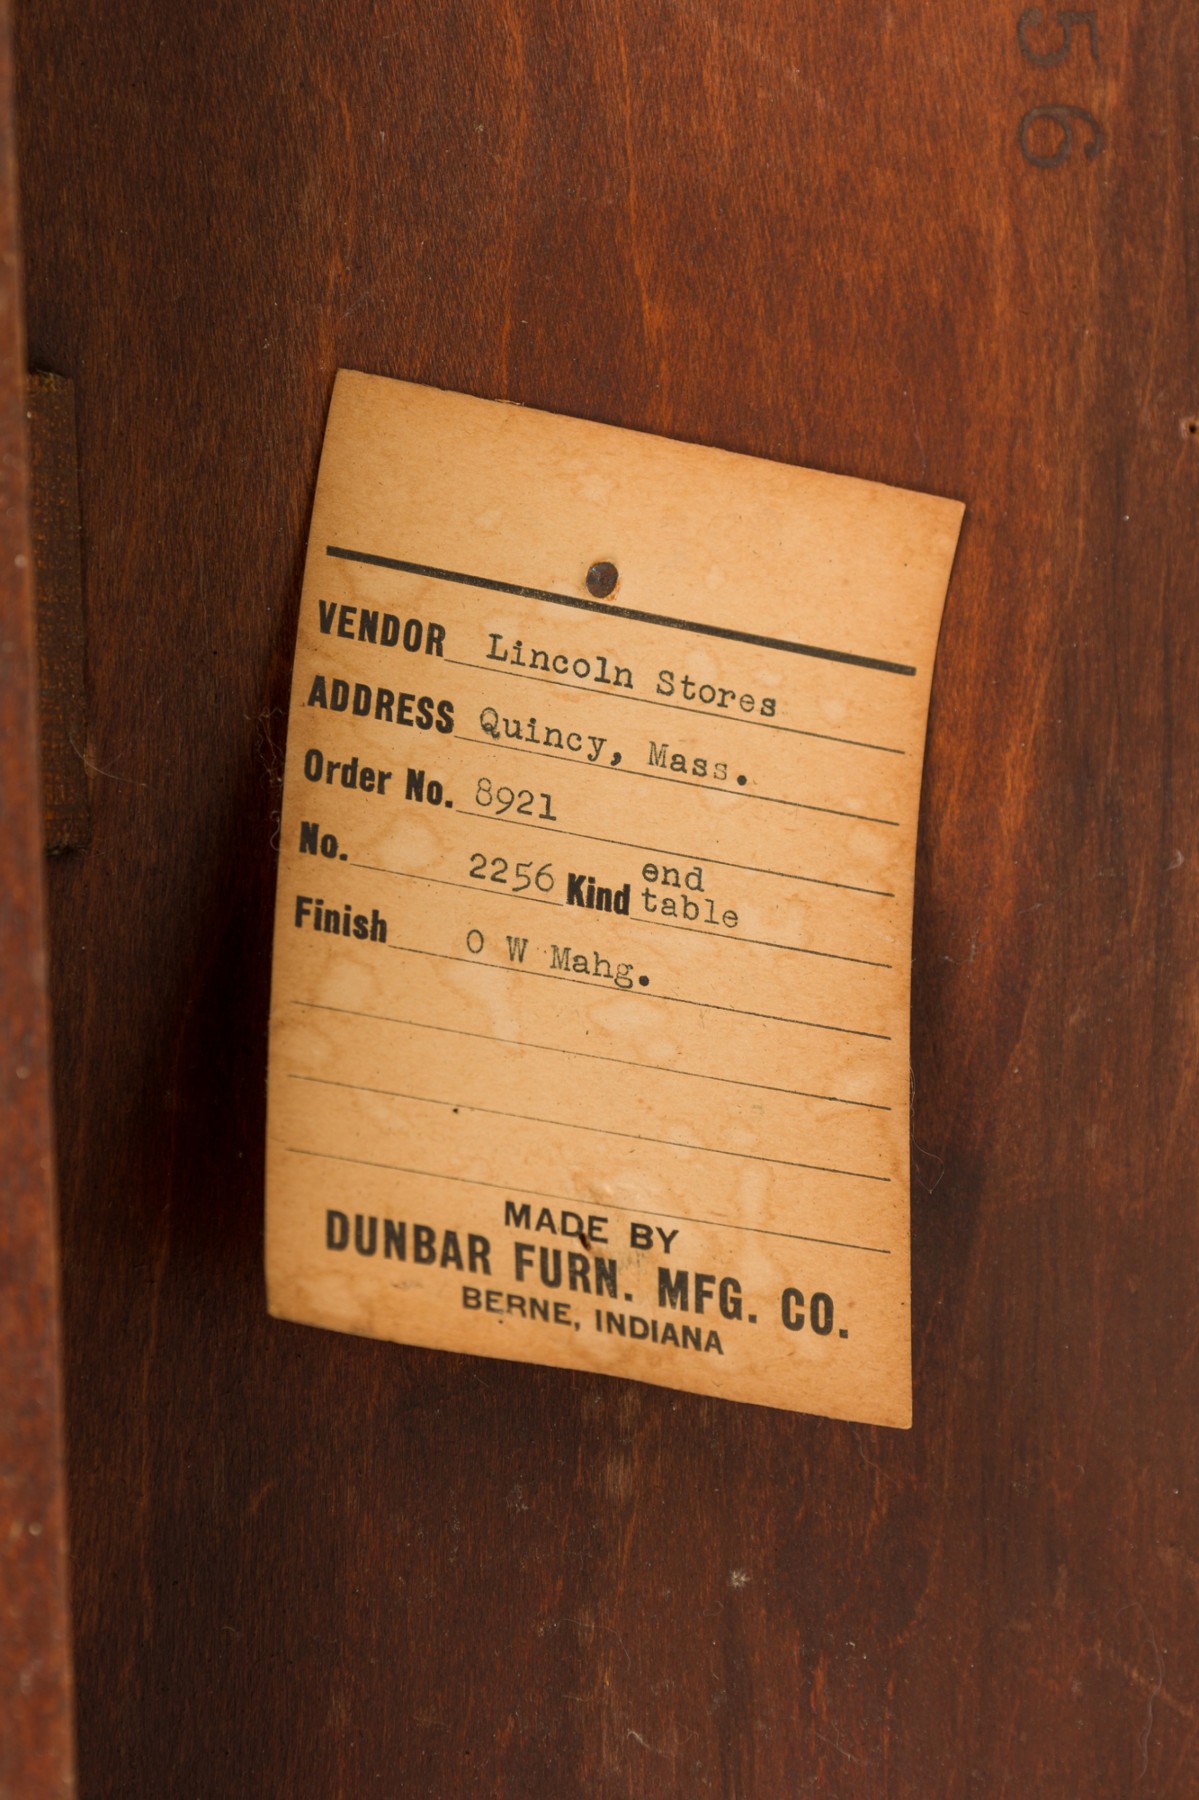 56
VENDOR Lincoln Stores
ADDRESS Quincy, Mass.
Order No. 8921
No. 2256 Kind end table
Finish O W Mahg.
MADE BY
DUNBAR FURN. MFG. CO.
BERNE, INDIANA